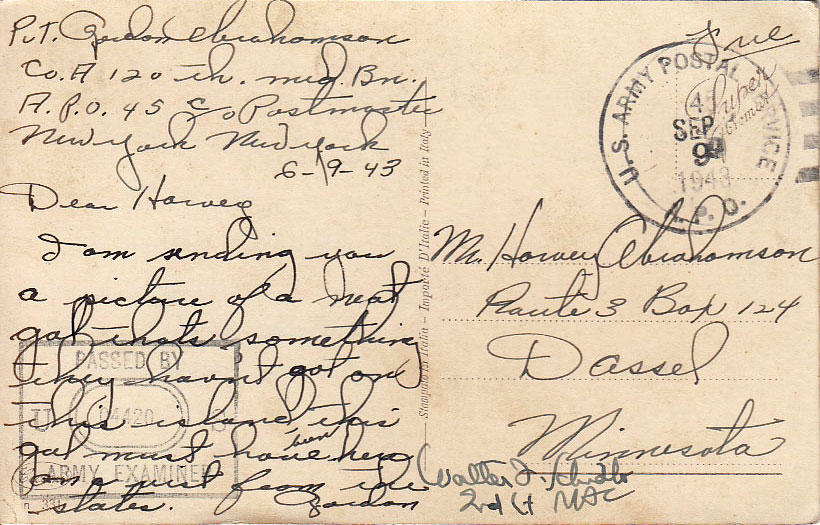 Pvt. Gordon Abrahamson
Co. A 120 th. med. Bn.
A.P.O. 45 c/o Postmaster
New York New York
6-19-43
Dear Harvey
I am sending you
a picture of a neat
gal thats something
they havnt got on
this island this
gal must have been here
some just from the
states. Gordon
PASSED BY
U 04420 S
ARMY EXAMINER
Stampato in Italia – Importé D'Italie – Printed in Italy
Free
U.S. ARMY POSTAL SERVICE
45
SEP
9
1943
A.P.O.
Mr. Harvey Abrahamson
Route 3 Box 124
Dassel
Minnesota
Walter J.
2nd Lt MAC